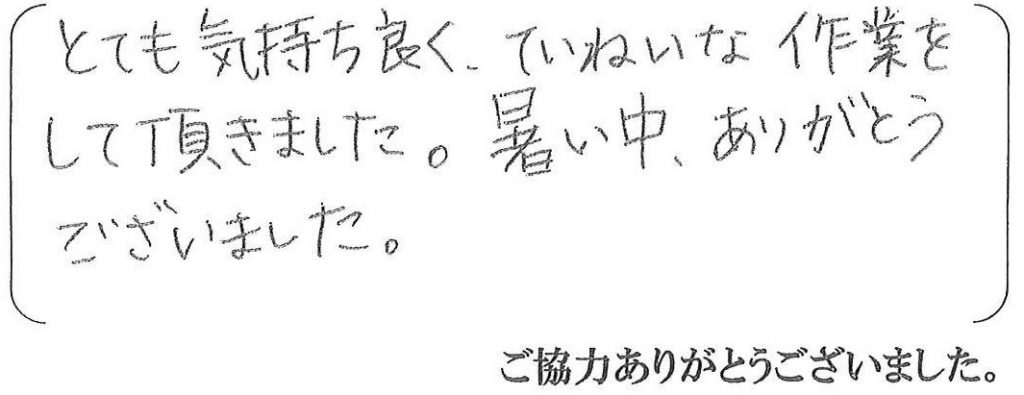 とても気持ち良く、ていねいな作業を
して頂きました。暑い中、ありがとう
ございました。
ご協力ありがとうございました。